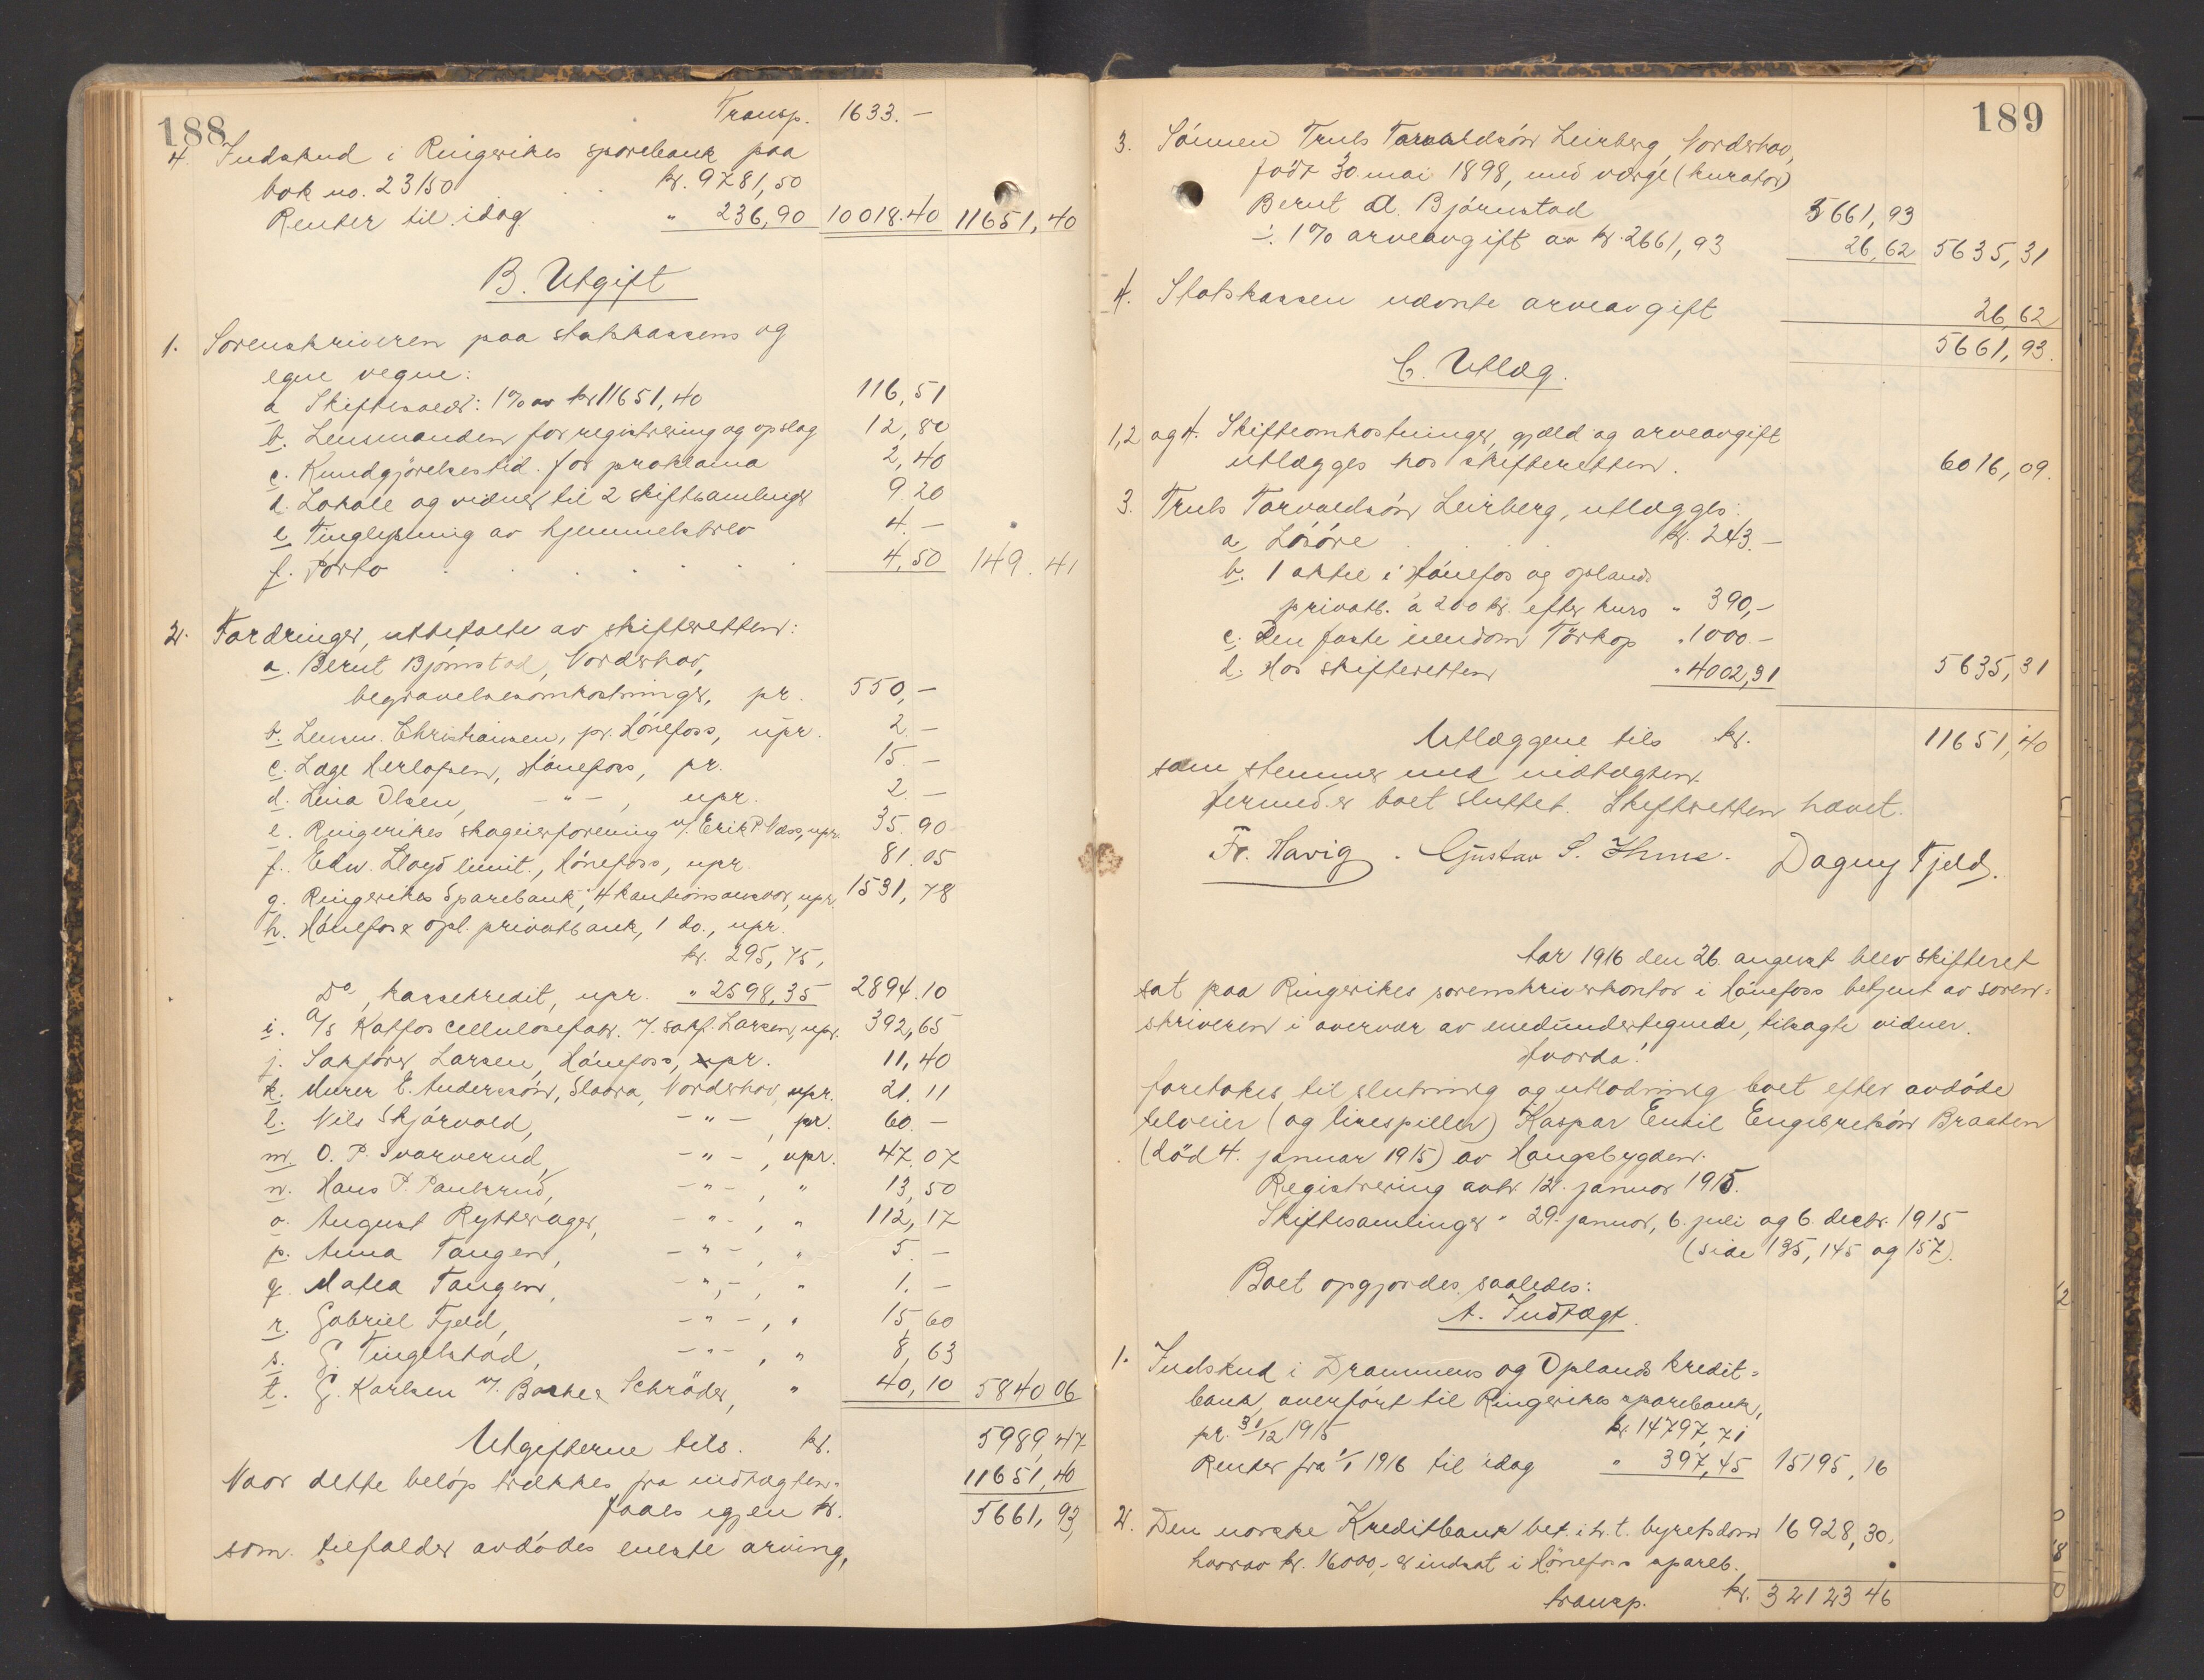 188
Transp. 1633.-
4. Indskud i Ringerikes sparebank paa
bok no. 23150 kr. 9781,50
Renter til idag " 236,90 10018.40 11651,40
B. Utgift
1. Sorenskriveren paa statskassens og
egne vegne:
a Skiftesaler: 1% av kr 11651,40 116,51
b. Lensmanden for registrering og opslag 12,80
c. Kundgjörelsestid. for proklama 2,40
d. Lokale og vidner til 2 skiftesamlinger 9.20
e Tinglysning av hjemmelsbrev 4.-
f. Porto 4,50 149.41
2. Fordringer, utbetalte av skifteretten:
a. Bernt Bjørnstad, Norderhov,
begravelsesomkostninger, pr. 550,-
b. Lensm. Christiansen, pr. Hönefoss, upr. 2.-
c. Læge Herlofsen, Hönefoss, pr. 15.-
d. Lina Olsen, -"-, upr. 2.-
e. Ringerikes skogeierforening v/ Erik P. Næss, upr. 35.90
f. Edw. Lloyd limit., Hönefoss, upr. 81.05
g. Ringerikes Sparebank, 4 kautionsansvar, upr. 1531,78
h. Hönefos & Opl. privatbank, 1 do., upr.
kr. 295,75,
Do, kassekredit, upr. " 2598,35 2894.10
i. A/s Kaffos Cellulosefabr. v/ sakf. Larsen, upr. 392,65
j. Sakförer Larsen, Hönefoss, upr. 11,40
k. Murer E. Anderssön, Slaara, Norderhov, upr. 21.11
l. Nils Skjörvold, -"-, pr. 60.-
m. O. P. Svarverud, -"-, upr. 47.07
n. Hans P. Paulsrud, -"-, " 13,50
o. August Rytterager, -"-, " 112,17
p. Anna Tangen, -"-, " 5.-
q. Mathea Tangen, -"-, " 1.-
r. Gabriel Fjeld, -"-, " 15.60
s. G. Tingelstad, -"-, " 8,63
t. G. Karlsen v/ Backe & Schröder, " 40,10 5840 06
Utgifterne tils. kr. 5989,47
Naar dette belöp trækkes fra indtægten: 11651,40
faaes igjen kr. 5661,93,
som tilfalder avdödes eneste arving,
189
3. Sönnen Truls Torvaldsön Leirberg, Norderhov,
född 30. mai 1898, med verge (kurator)
Bernt A. Björnstad 5661,93
÷ 1% arveavgift av kr. 2661,93 26,62 5635,31
4. Statskassen nævnte arveavgift 26,62
5661,93.
C. Utlæg.
1,2 og 4. Skifteomkostninger, gjæld og arveavgift
utlægges hos skifteretten. 6016,09.
3. Truls Torvaldsön Leirberg, utlægges:
a, Lösöre kr. 243.-
b. 1 aktie i Hönefos og oplands
privatb. à 200 kr. efter kurs " 390,-
c. Den faste eiendom Törkop " 1000.-
d. Hos skifteretten " 4002,31 5635,31
Utlæggene tils kr. 11651,40
som stemmer med indtægten.
Hermed er boet sluttet. Skifteretten hævet.
Fr. Havig. Gustav S. Dagny Fjeld.
Aar 1916 den 26. august blev skifteret
sat paa Ringerikes sorenskriverkontor i Hönefoss betjent av soren-
skriveren i overvær av medundertegnede, tilsagte vidner.
Hvorda:
foretokes til slutning og utlodning boet efter avdöde
selveier (og lirespiller) Kaspar Emil Engebretsön Braaten
(död 4. januar 1915) av Haugsbygden.
Registrering avh. 12. januar 1915.
Skiftesamlinger " 29. januar, 6. juli og 6. decbr. 1915
(side 135, 145 og 157).
Boet opgjordes saaledes:
A. Indtægt.
1. Indskud i Drammens og Oplands kredit-
bank, overfört til Ringerikes sparebank,
pr. 31/12 1915 kr. 14797,71
Renter fra 1/1 1916 til idag " 397,45 15195,16
2. Den norske Kreditbank bet. i h. t. byretsdom 16928,30.
hvorav kr. 16000,- er indsat i Hönefoss spareb.
transp. kr. 32123 46